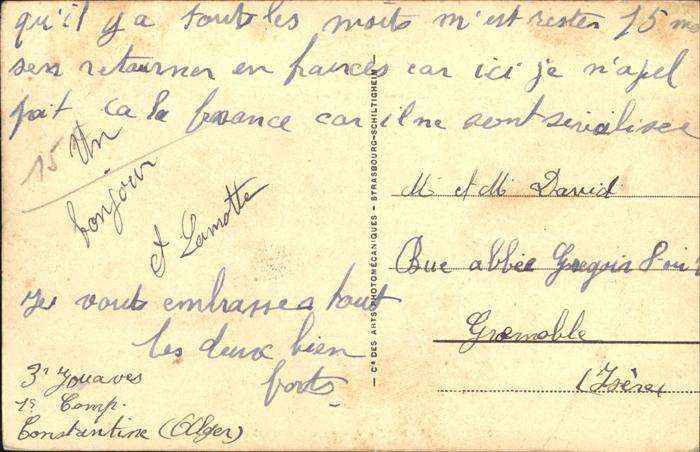 qu'il y a toute les moits m'est rester 15 mo
sen retourner en francés car ici je n'apel
pait ça la france car il ne sont sivialisée
15
Un
bonjour
a Lamotte
Je vouts embrasse a tout
les deux bien
forts.
3e Zouaves
1e Comp.
Constantine (Alger)
— Cie DES ARTS PHOTOMÉCANIQUES - STRASBOURG-SCHILTIGHEIM
Mr et Mr David
Rue abbée Gregoir
Grenoble
(Isère)